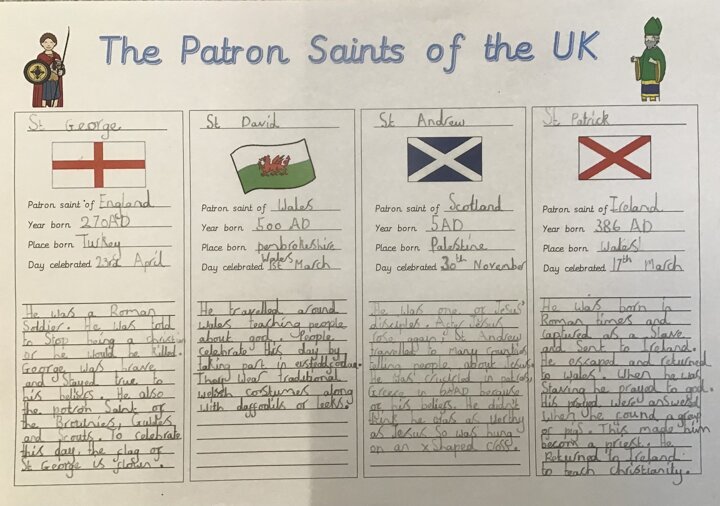 The Patron Saints of the UK
St George
Patron saint of England
Year born 270AD
Place born Turkey
Day celebrated 23rd April
He was a Roman
Soldier. He was told
to Stop being a christian
or he would be killed.
George was brave
and Stayed true to
his beliefs. He also
the patron Saint of
the Brownies, Guides
and Scouts. To celebrate
this day, the flag of
St George is flown.
St David
Patron saint of Wales
Year born 500 AD
Place born pembrokeshire
Wales
Day celebrated 1st March
He travelled around
Wales teaching people
about god. People
celebrate this day by
taking part in
They Wear traditional
welsh costumes along
with daffodils or leeks.
St Andrew
Patron saint of Scotland
Year born 5AD
Place born Palestine
Day celebrated 30th November
He was one of Jesus'
disciples. After Jesus
rose again, St Andrew
travelled to many countries
telling people about Jesus.
He was crucified in patros,
Greece in because
of his beliefs. He didn't
think he was as worthy
as Jesus so was hung
on an x shaped cross.
St Patrick
Patron saint of Ireland
Year born 386 AD
Place born Wales
Day celebrated 17th March
He was born in
Roman times and
captured as a Slave
and sent to Ireland.
He escaped and returned
to Wales. When he was
Staving he prayed to god.
His prayed were answerd
When he found a group
of pigs. This made him
become a priest. He
Returned to Ireland
to teach christianity.